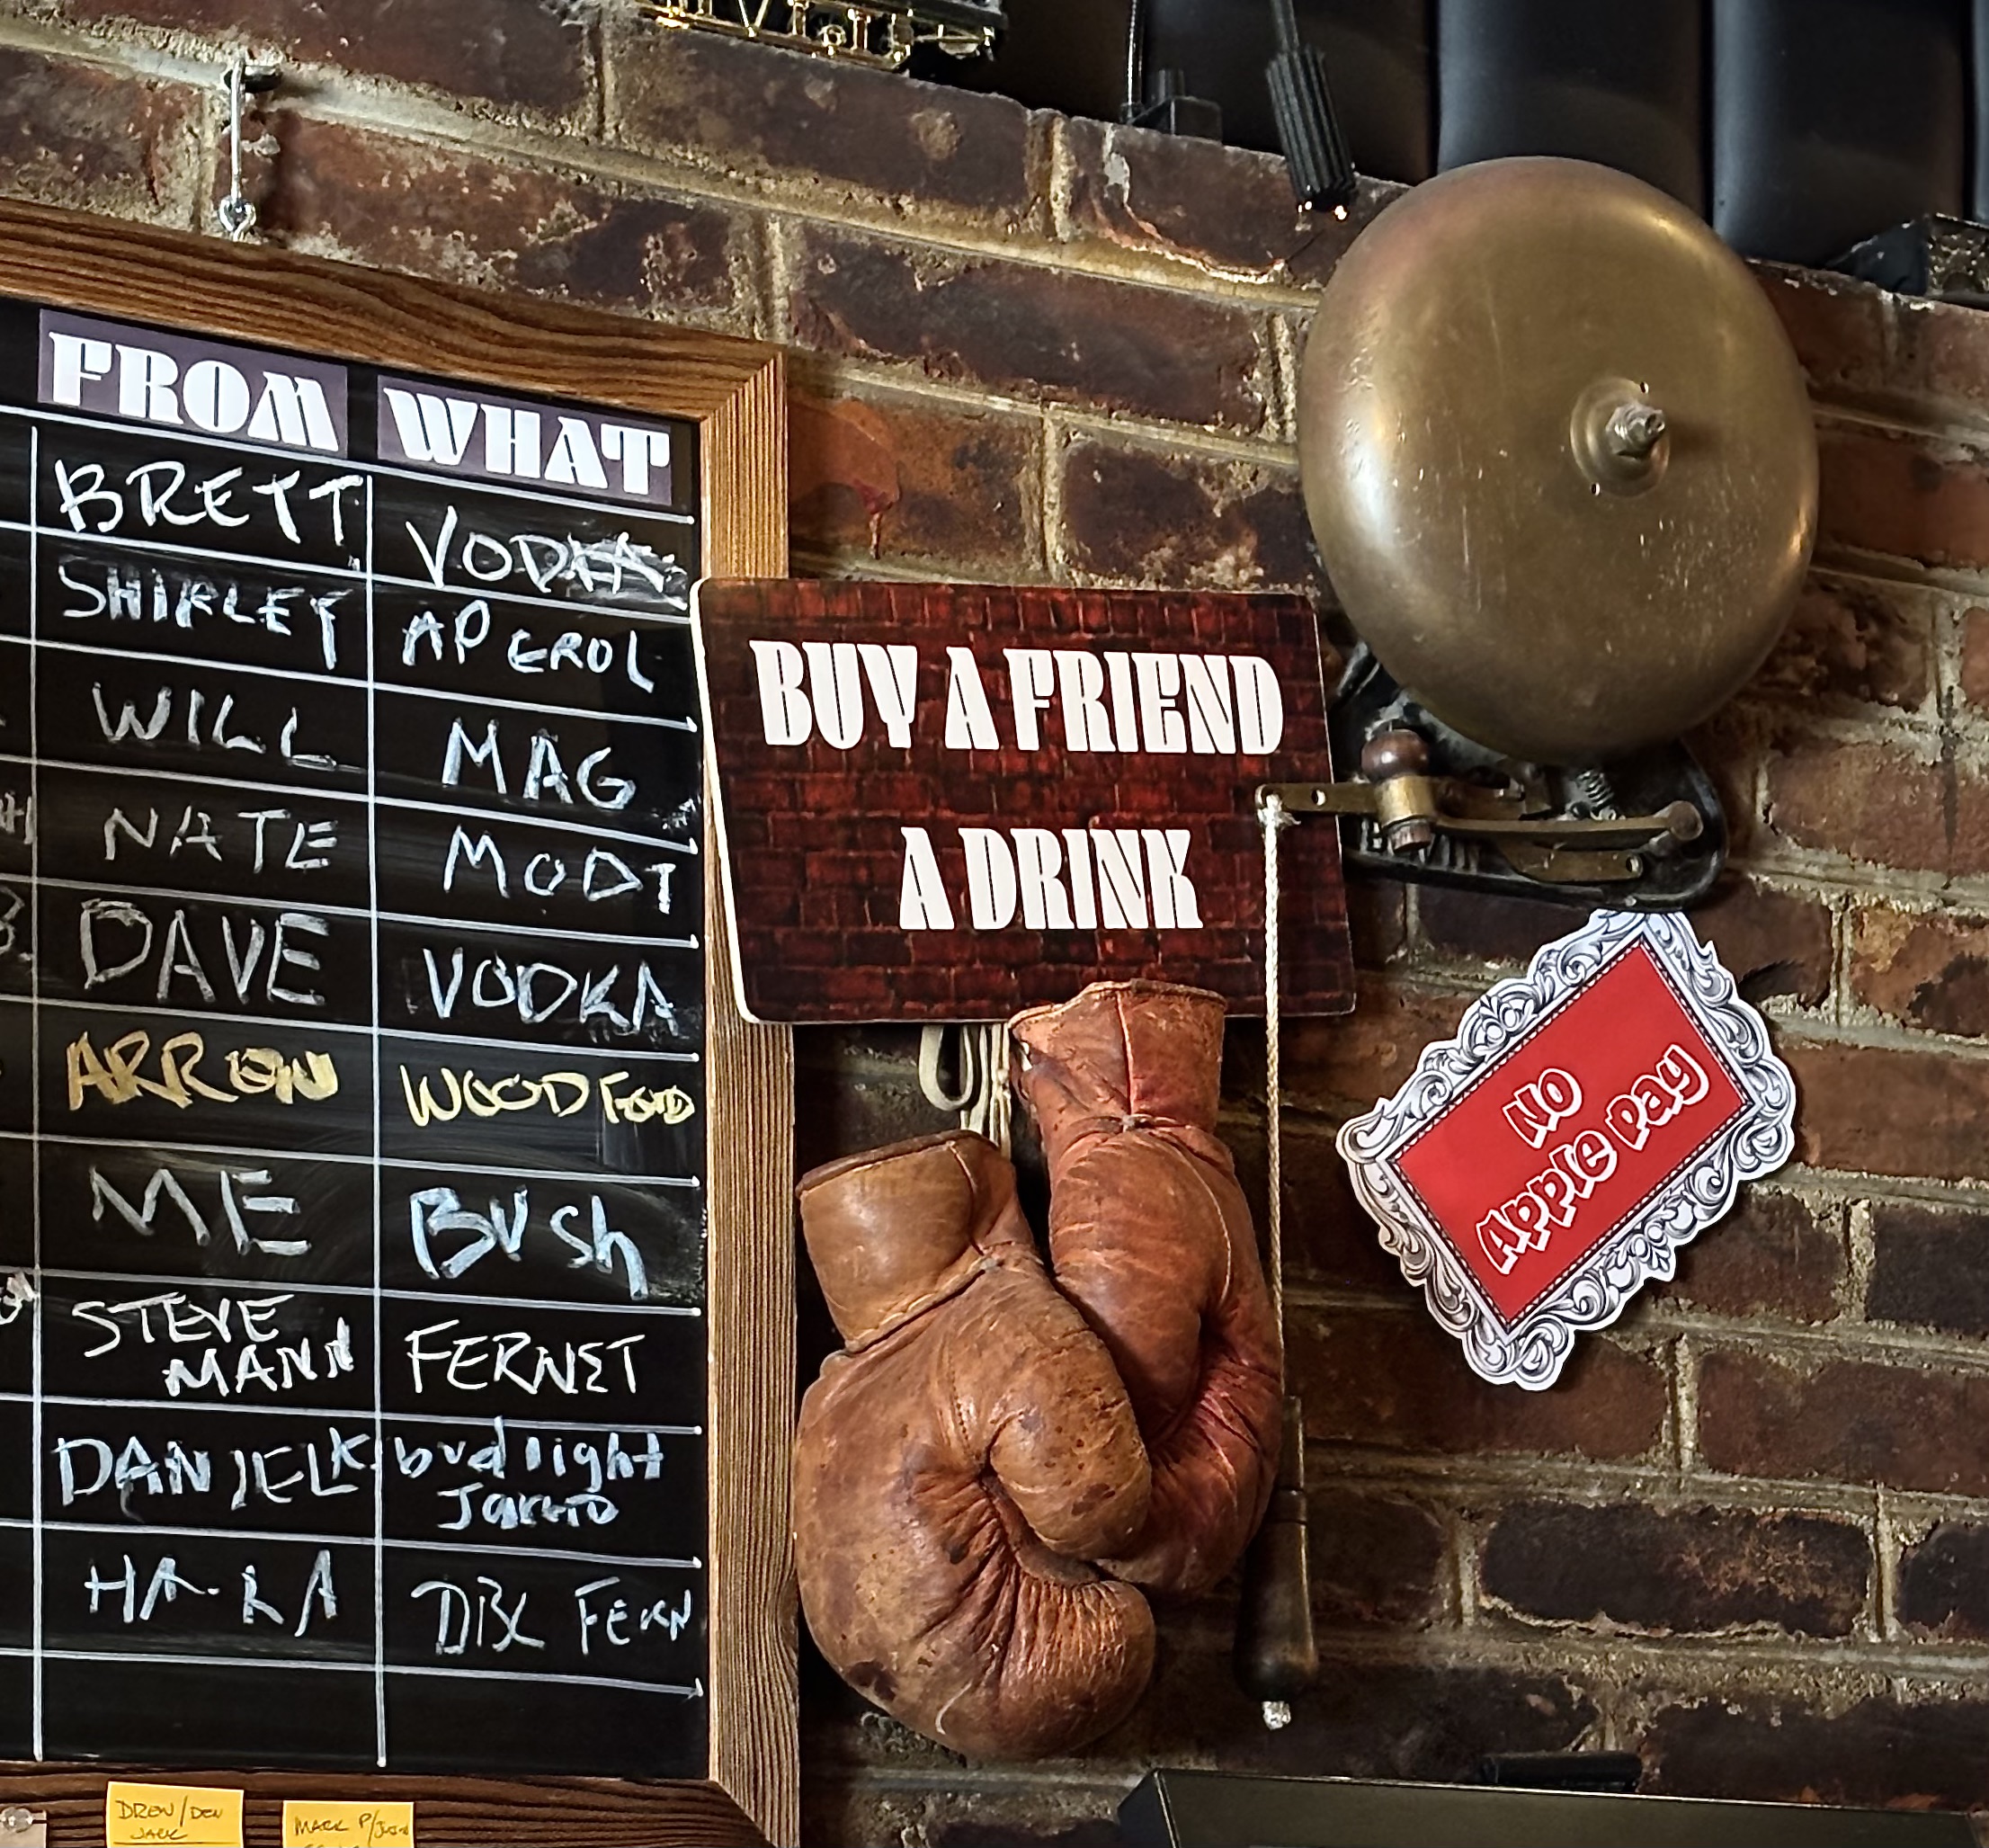 FROM WHAT
BRETT VODKA
SHIRLEY APEROL
WILL MAG
NATE MODT
DAVE VODKA
ARRON WOODFORD
ME BUSh
STEVE
MANN FERNET
DANIEL K. bud light
HA-RA DBL FERN
BUY A FRIEND
A DRINK
NO
APPLE PAY
DREW/DEN
JACK
MARK P/